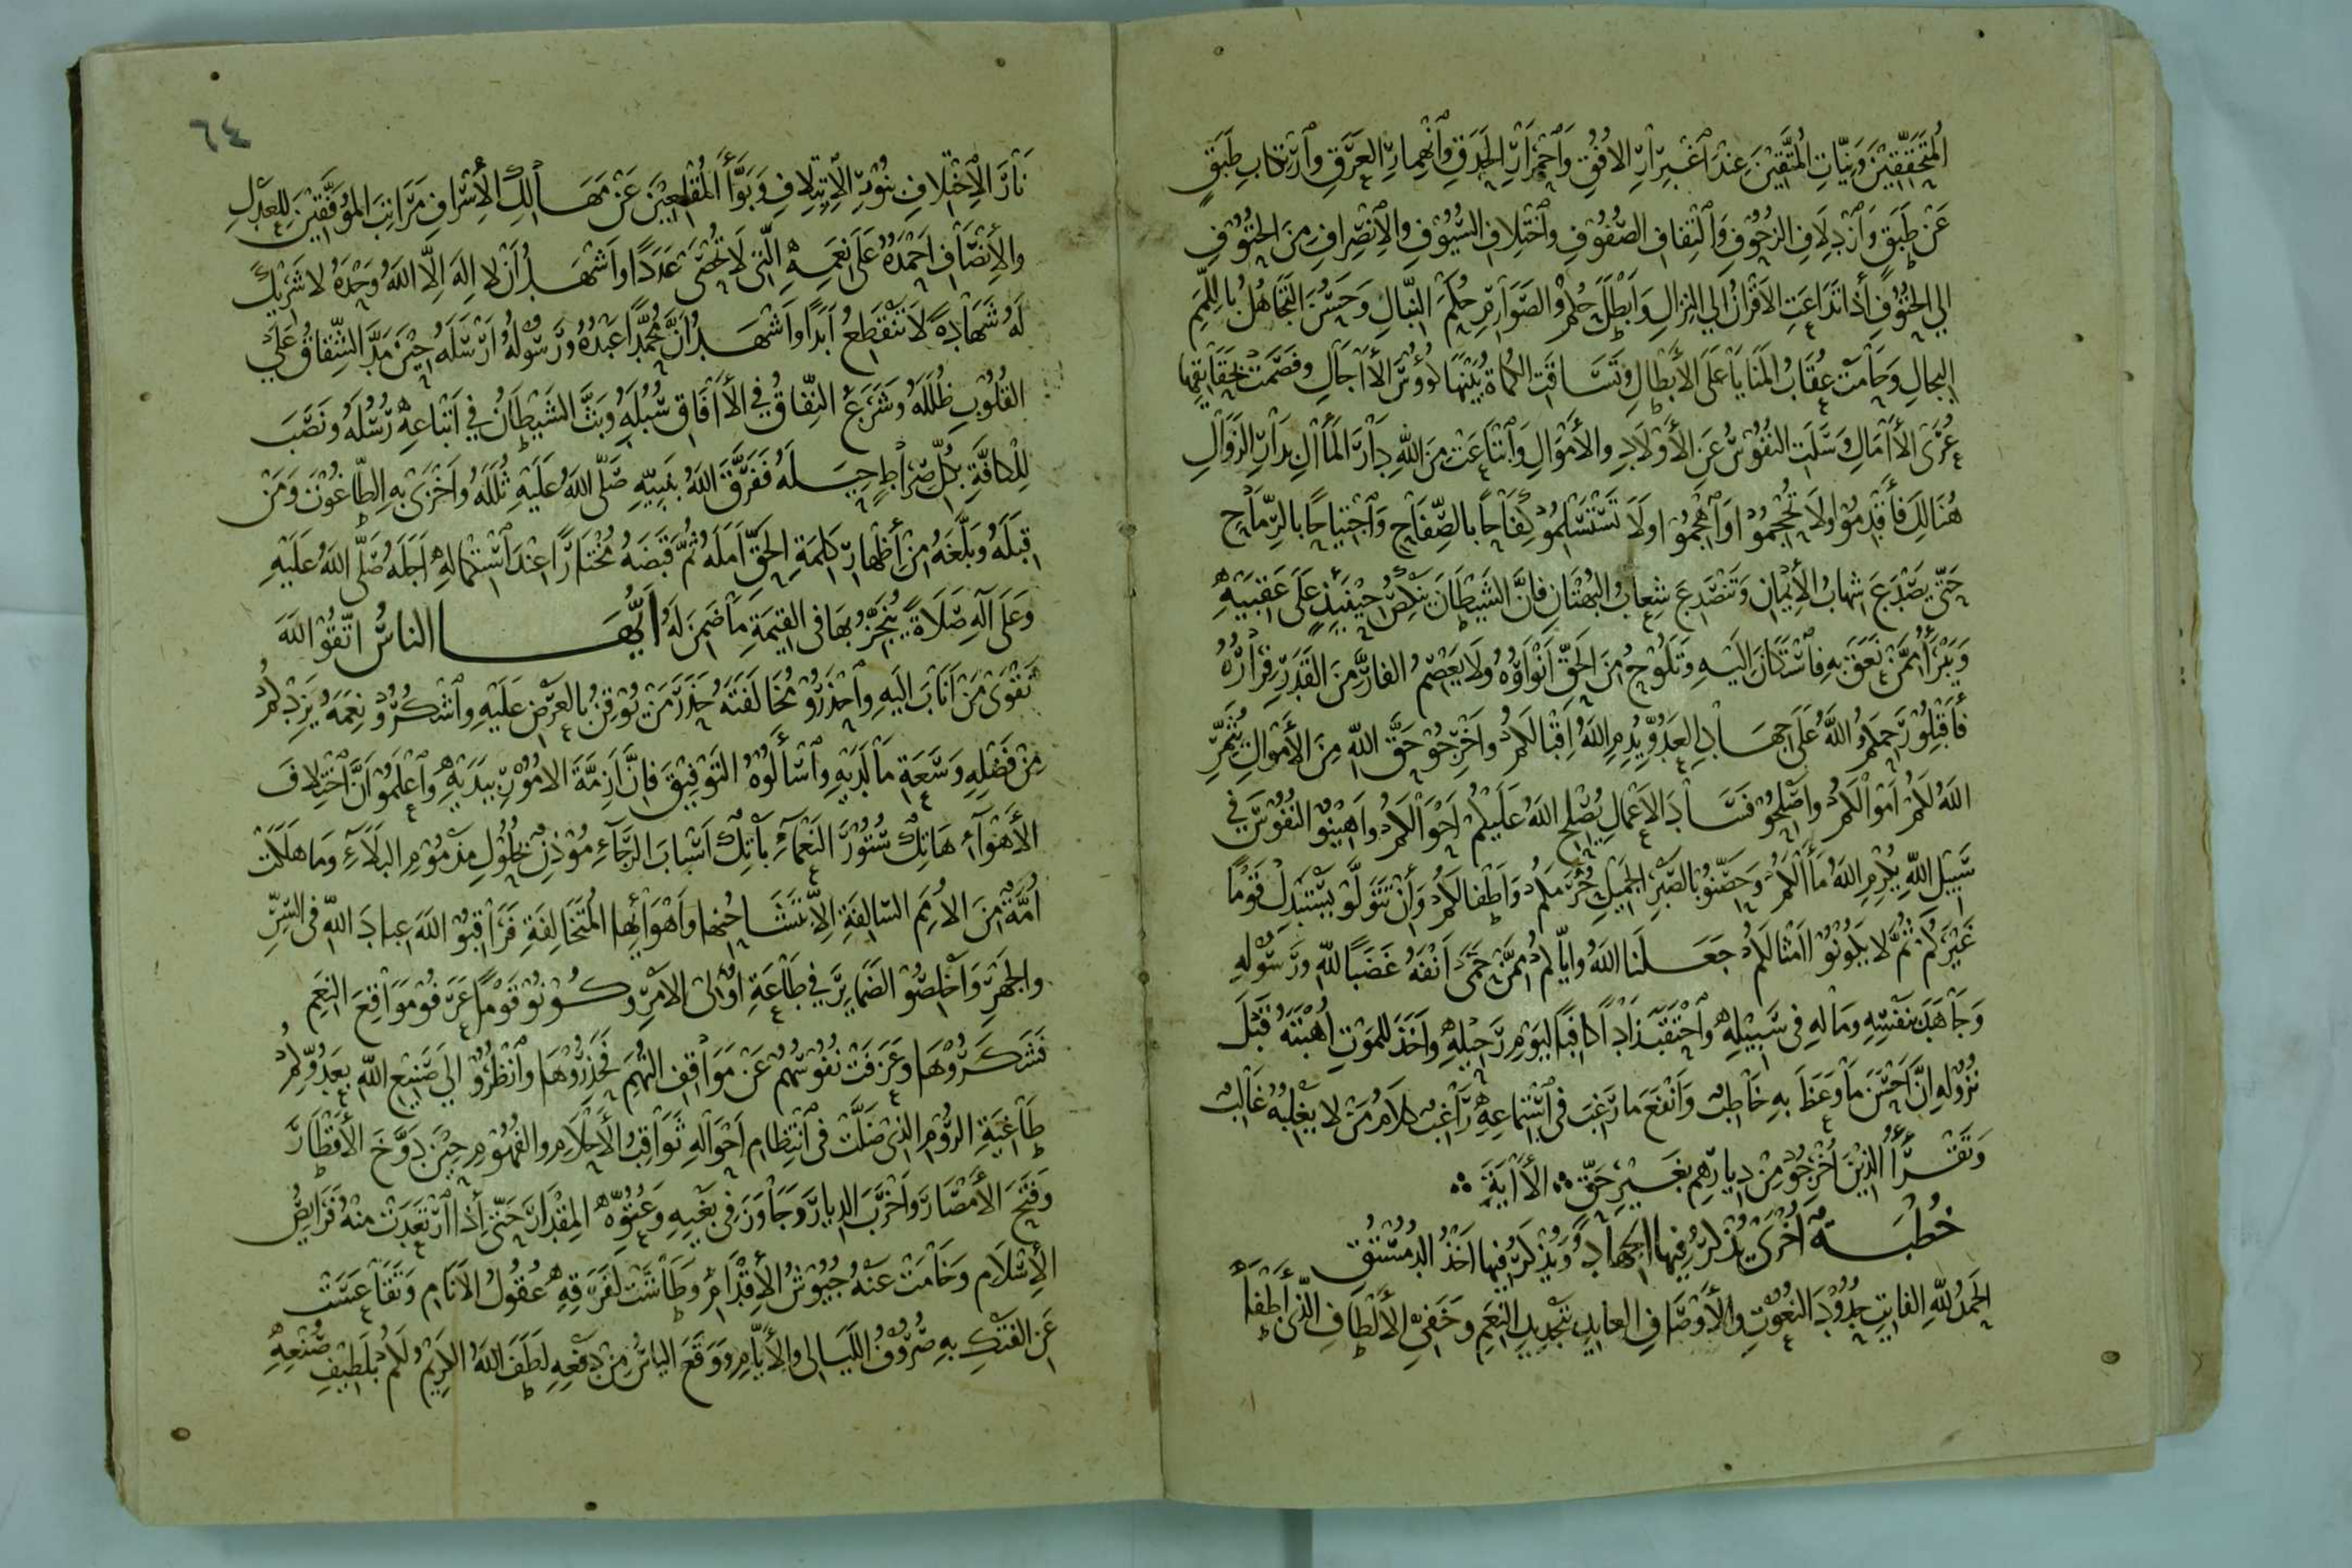 المتحققين ونيات المتقين عند اغبرار الافق واحمرار الحدق وانهمار العرق وارتكاب طبق
عن طبق وازدلاف الزحوف والتفاف الصفوف واختلاف السيوف والانصراف من الحتوف
الي الحتوف اذا تداعت الاقران الي النزال وابطل حكم الصوارم حكم النبال وحسن التجاهل باللمم
البجال وحامت عقاب المنايا على الابطال وتساقت الكماة بينها كؤوس الآجال وفصمت بحقايقها
عرى الآمال وسلت النفوس عن الأولاد والأموال وابتاعت من الله دار المآل بدار الزوال
هنالك فأقدموا ولا تحجموا واهجموا ولا تستسلموا كفاحا بالصفاح واجتياحا بالرماح
حتى يصدع شهاب الأيمان وتنصدع شعاب البهتان فإن الشيطان ينكص حينئذ على عقبيه
ويبرأ ممن نعق به فاستكان اليه وتلوح من الحق انواوه ولا يعصم الفار من القدر فراره
فأقبلو رحمكم الله على جهاد العدو يدم الله اقبالكم واخرجو حق الله من الأموال يثمر
الله لكم اموالكم واصلحو فساد الاعمال يصلح الله عليكم احوالكم واهينو النفوس في
سبيل الله يكرم الله مآلكم وحصنو بالصبر الجميل حرمكم واطفالكم وان تتولو يستبدل قوما
غيركم ثم لا يكونوا امثالكم جعلنا الله واياكم ممن حمى انفه غضبا لله ورسوله
وجاهد بنفسه وماله في سبيله واحتقب زادا كافيا ليوم رحيله واخذ للموت اهبته قبل
نزوله ان احسن ما وعظ به خاطب وانفع ما رغب في استماعه راغب كلام من لا يغلبه غالب
وتقرأ الذين اخرجو من ديارهم بغير حق الآية
خطبة اخرى يذكر فيها الجهاد ويذكر فيها اخذ الدمستق
الحمد لله الفايت حدود النعوت والأوصاف العايد بتجديد النعم وخفي الألطاف الذي أطفأ
٦٤
نار الاختلاف بنور الإيتلاف وبوأ المقلعين عن مهالك الأشراف مراتب الموفقين للعدل
والأنصاف احمده على نعمه التي لا تحصى عددا واشهد أن لا اله الا الله وحده لا شريك
له شهادة لا تنقطع ابدا واشهد ان محمدا عبده ورسوله ارسله حين مد الشقاق على
القلوب ظلله وشرع النفاق في الآفاق سبله وبث الشيطان في اتباعه رسله ونصب
للكافة بكل صراط حيله ففرق الله بنبيه صلى الله عليه ثلله واخزى به الطاغوت ومن
قبله وبلغه من أظهار كلمة الحق امله ثم قبضه مختارا عند استكماله اجله صلى الله عليه
وعلى آله صلاة ينجز بها في القيمة ما ضمن له ايها الناس اتقو الله
تقوى من اناب اليه واحذرو مخالفته حذر من يوقن بالعرض عليه واشكرو نعمه يزدكم
من فضله وسعة ما لديه واسألوه التوفيق فان ازمة الامور بيديه واعلمو ان اختلاف
الأهوآء هاتك ستور النعمآء باتك اسباب الرجآء موذن بحلول مذموم البلآء وما هلكت
امة من الامم السالفة الا بتشاحنها واهوائها المتخالفة فراقبو الله عباد الله في السر
والجهر واخلصو الضماير في طاعة اولى الامر وكونو قوما عرفو مواقع النعم
فشكروها وعزفت نفوسهم عن مواقف التهم فحذروها وانظرو الي صنيع الله بعدوكم
طاغية الروم الذي ضلت في انتظام احواله ثواقب الأحلام والفهوم حين دوخ الأقطار
وفتح الأمصار واخرب الديار وجاوز في بغيه وعتوه المقدار حتى أذا ارتعدت منه فرايص
الأسلام وخامت عنه جيوش الأقدام وطاشت لفرقه عقول الانام وتقاعست
عن الفتك به صروف الليالي والأيام ووقع الياس من دفعه لطف الله الكريم لكم بلطيف صنعه